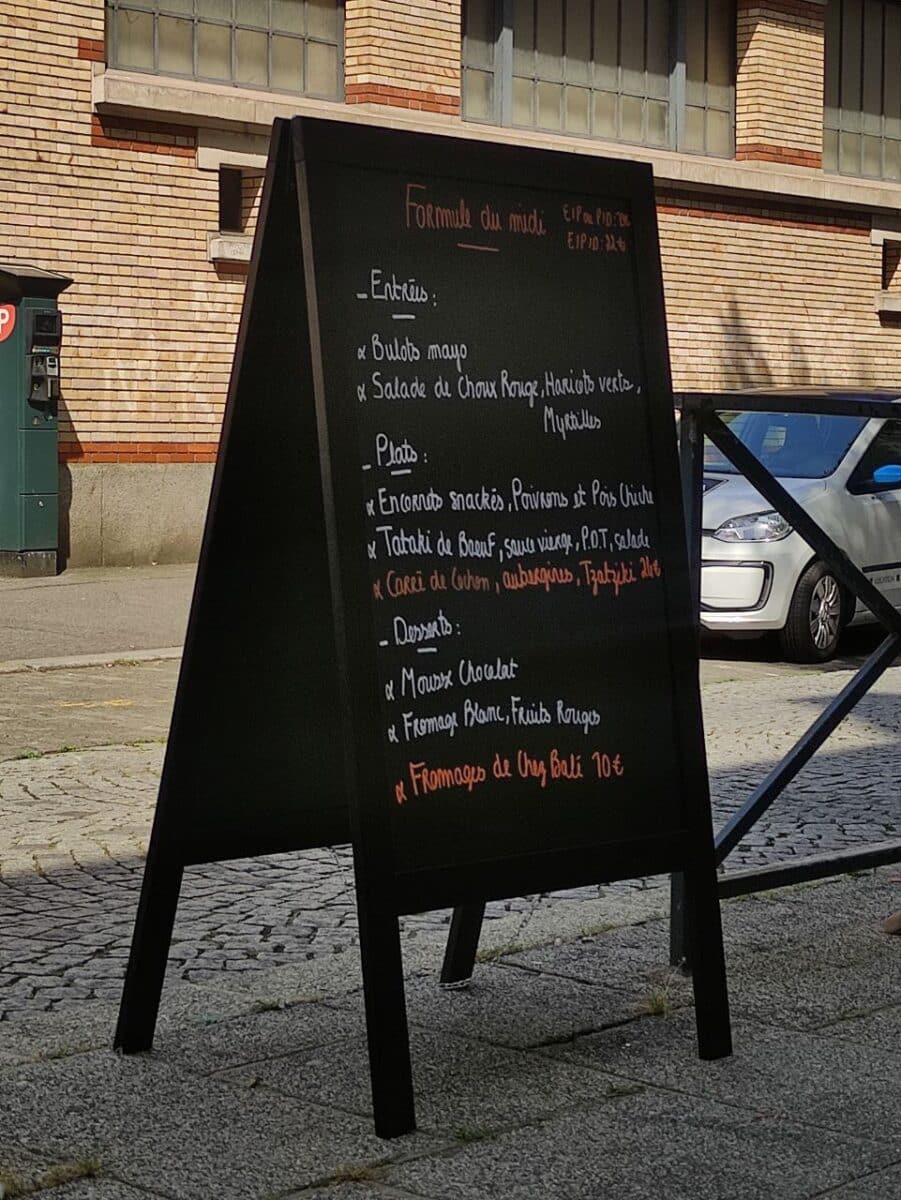 Formule du midi
E/P ou P/D:
E/P/D: 22€
- Entrées:
α Bulots mayo
α Salade de Choux Rouge, Haricots verts,
Myrtilles
- Plats:
α Encornets snackés, Poivrons et Pois Chiche
α Tataki de Bœuf, sauce vierge, P.D.T, salade
α Carré de Cochon, aubergines, Tzatziki 24€
- Desserts:
α Mousse Chocolat
α Fromage Blanc, Fruits Rouges
α Fromages de Chez 10€
P